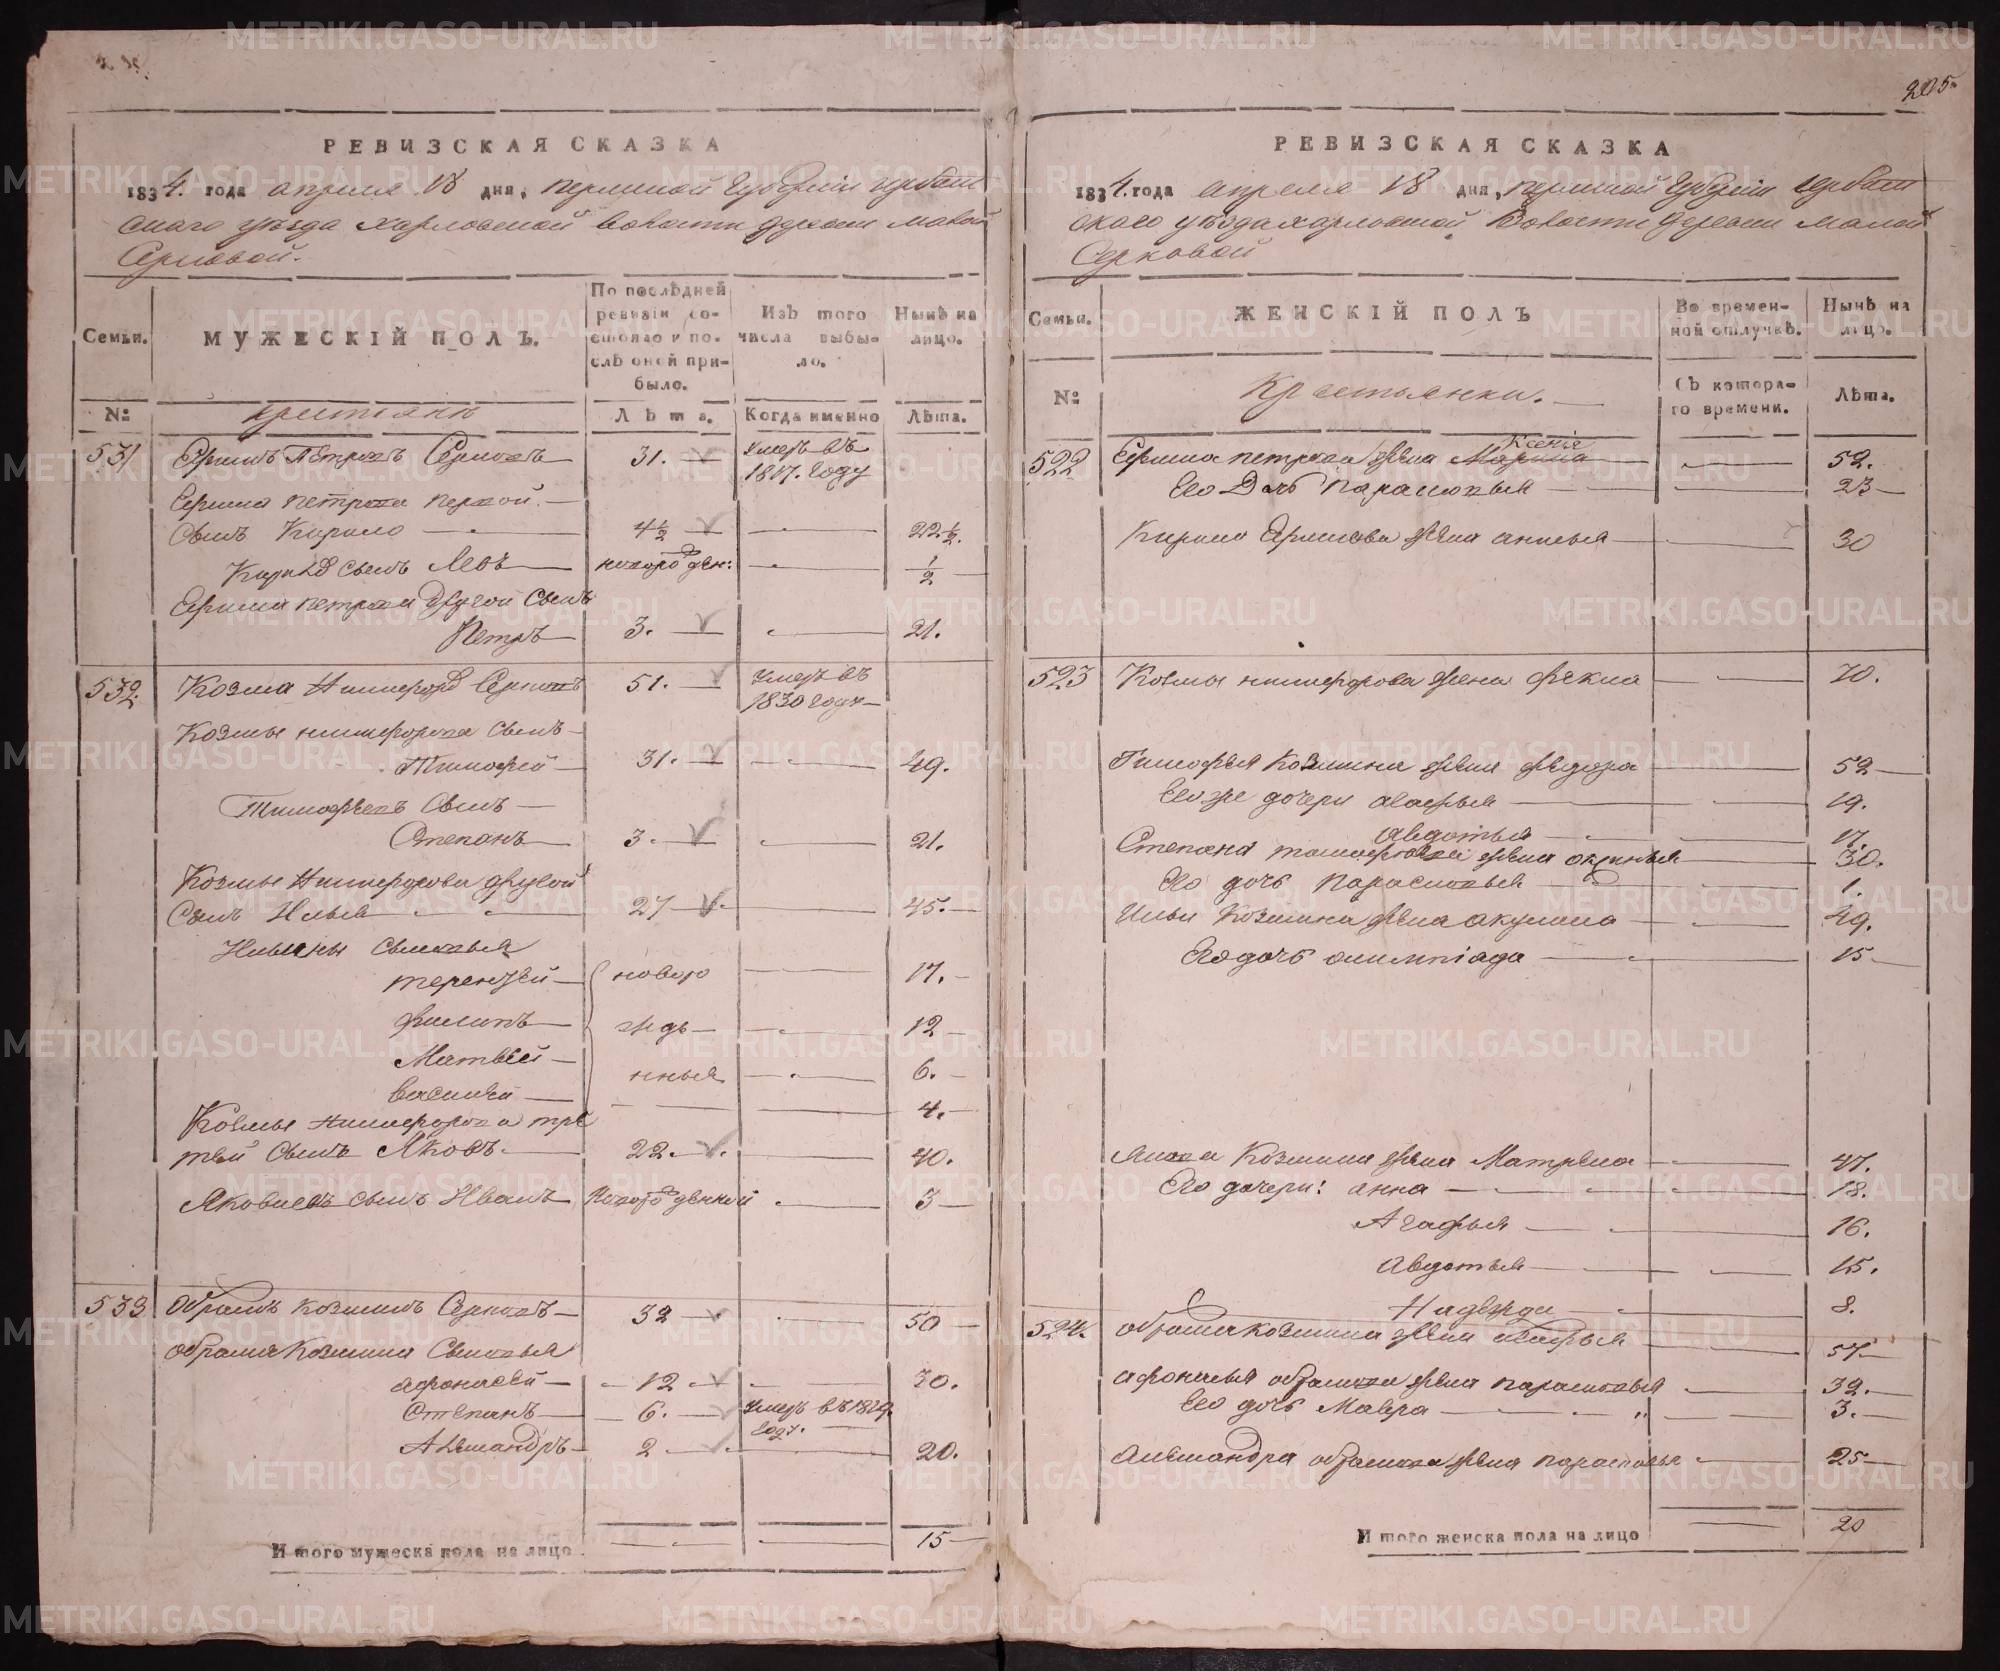 205
РЕВИЗСКАЯ СКАЗКА
1834. года апреля 18 дня, пермской Губернiи ирбит
скаго уѣзда харловской волости деревни малой
Серковой.
Семьи.
МУЖЕСКIЙ ПОЛЪ.
По послѣдней
ревизiи со-
стояло и по-
слѣ оной при-
было.
Изъ того
числа выбы-
ло.
Нынѣ на
лицо.
№
крестьянъ
Лѣта.
Когда именно
Лѣта.
531 Ефимъ Петровъ Серковъ 31. умеръ въ
1817. году
Ефима петрова первой
Сынъ Кирило 4 1/2 22 1/2.
Кирилъ сынъ Левъ новорожден: 1/2
Ефима петрова другой Сынъ
Петръ 3. 21.
532. Козма Никифоровъ Серковъ 51. умеръ въ
1830 году
Козмы никифорова сынъ
Тимофей 31. 49.
Тимофеевъ Сынъ
Степанъ 3. 21.
Козмы Никифорова другой
Сынъ Илья 27 45.
Ильины сыновья
терентей новоро 17.
филипъ жде 12
Матвей нныя 6.
василей 4.
Козмы Никифорова тре
тей сынъ Яковъ. 22. 40.
Яковлевъ сынъ Иванъ Новорожденной 3
533 Обрамъ козминъ Серковъ 32 50
обрама Козмина Сыновья
афонасей 12 30.
Степанъ 6. умеръ въ 1829.
году.
Александръ 2 20.
Итого мужеска пола на лицо 15
РЕВИЗСКАЯ СКАЗКА
1834. года апреля 18 дня, пермской Губернiи ирбит
скаго уѣзда харловской волости деревни малой
Серковой
Семьи.
ЖЕНСКIЙ ПОЛЪ
Во времен-
ной отлучкѣ.
Нынѣ на
лицо.
№
Крестьянки.
Съ котора-
го времени.
Лѣта.
Ксенiя
522 Ефима петрова жена Марина 52.
Его Дочь Парасковья 23
Кирила Ефимова жена анисья 30
523 Козмы никифорова жена фекла 70.
Тимофея Козмина жена федора 52
Его же дочери агафья 19.
авдотья 17.
Степана тимофеева жена окулина 30.
Его дочь Парасковья 1.
Ильи Козмина жена акулина 49.
Его дочь олимпiада 15
Якова Козмина жена Матрена 47.
Его дочери: анна 18.
Агафья 16.
авдотья 15.
Надежда 8.
524. обрама козмина жена агафья 57
афонасья обрамова жена парасковья 32.
Его дочь Мавра 3.
александра обрамова жена парасковья 25
Итого женска пола на лицо 20
METRIKI.GASO-URAL.RU